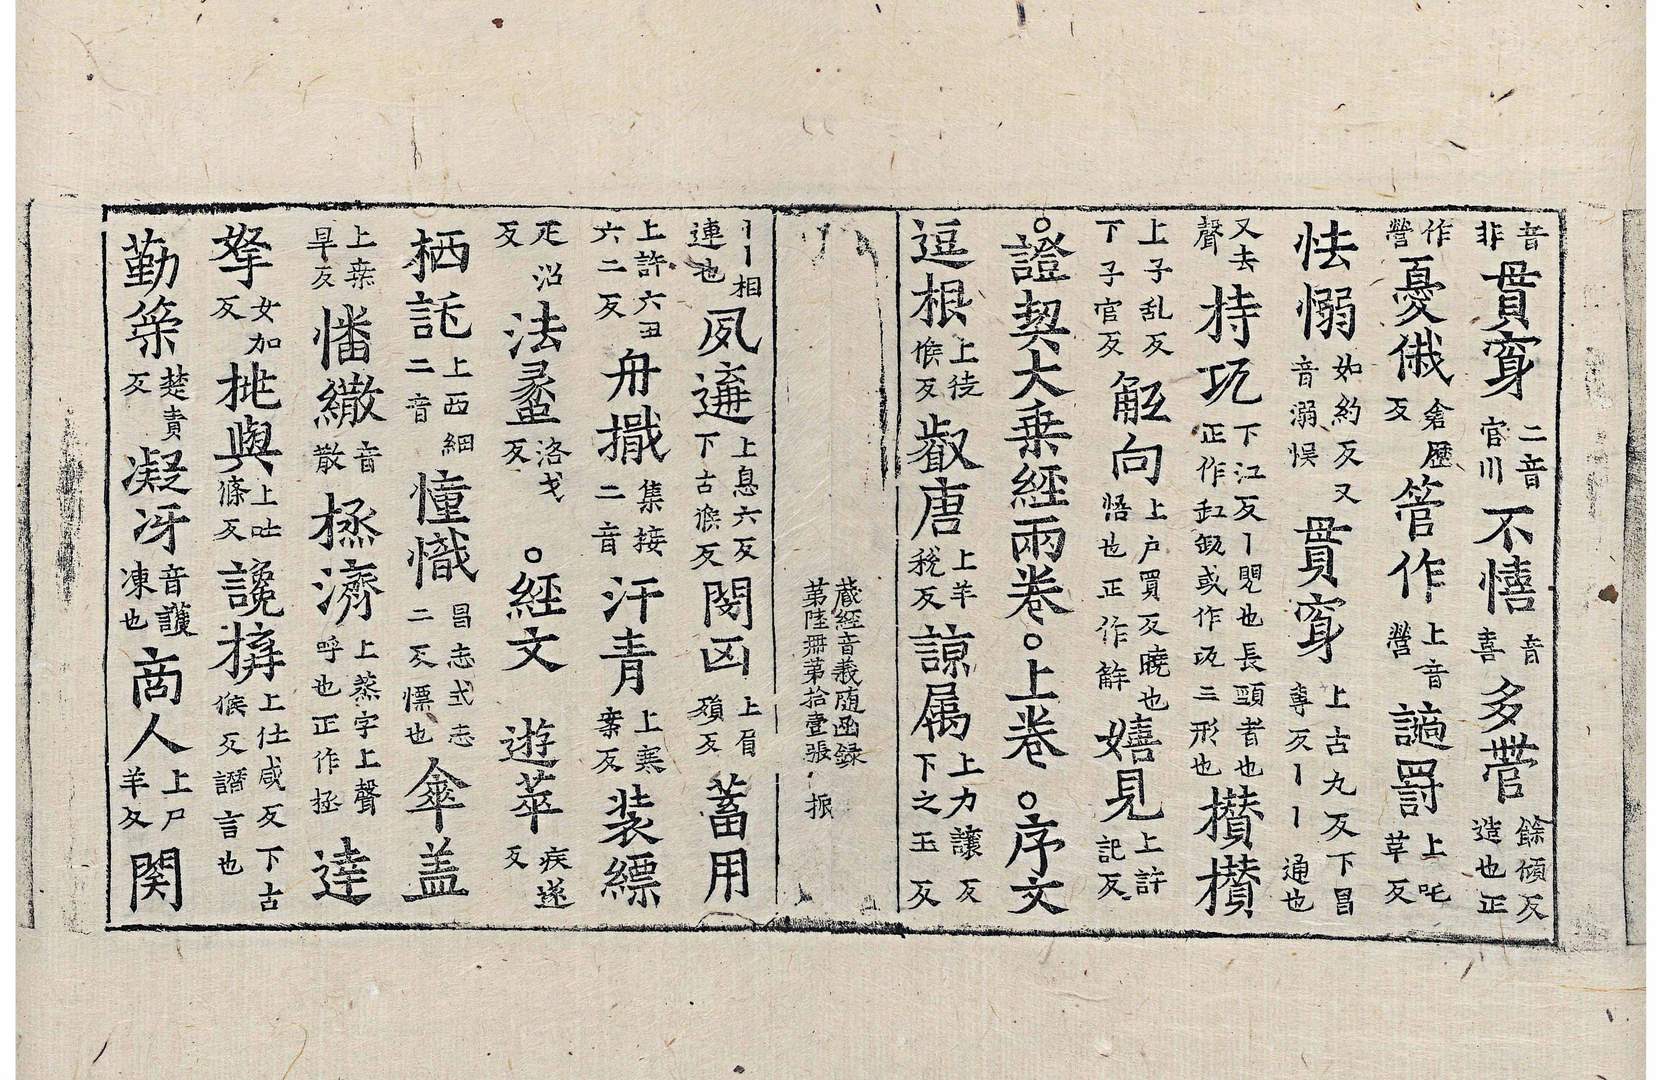 音非貫穿二音官川不憘音喜多営餘傾反造也正
作營憂俄倉歷反管作上音營謫罰上吒革反
怯愵如約反又音溺悮貫穿上古九反下昌專反丨丨通也
又去聲持㼚下江反丨甖也長頸者也正作缸瓨或作㼚三形也攅攅
上子乱反下子官反解向上户買反曉也悟也正作解嬉見上許記反
○證契大乗經兩卷○上卷○序文
逗根上徒候反叡唐上羊稅反諒属上力讓反下之玉反
藏經音義随函録
第陸冊第拾壹張 振
丨丨相連也夙遘上息六反下古候反閔凶上眉殞反蓄用
上許六丑六二反冊撠集接二音汗青上寒案反裝縹
疋沼反法蠡洛戈反○經文遊萃疾遂反
栖託上西細二音憧幟昌志式志二反㯹也傘盖
上桒旱反憣繖音散拯濟上蒸字上聲呼也正作拯逹
拏女加反挑與上吐條反讒搆上仕咸反下古候反譖言也
勤策楚責反凝冴音護凍也商人上尸羊反関